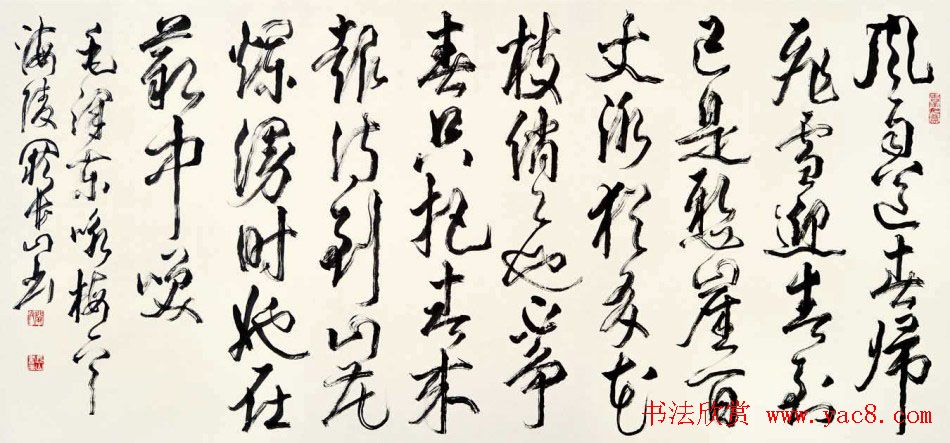 風雨送春歸
飛雪迎春到
已是懸崖百
丈冰猶有花
枝俏俏也不爭
春只把春來
報待到山花
爛漫时她在
叢中笑
毛澤東咏梅
海陵山书
书法欣赏 www.yac8.com